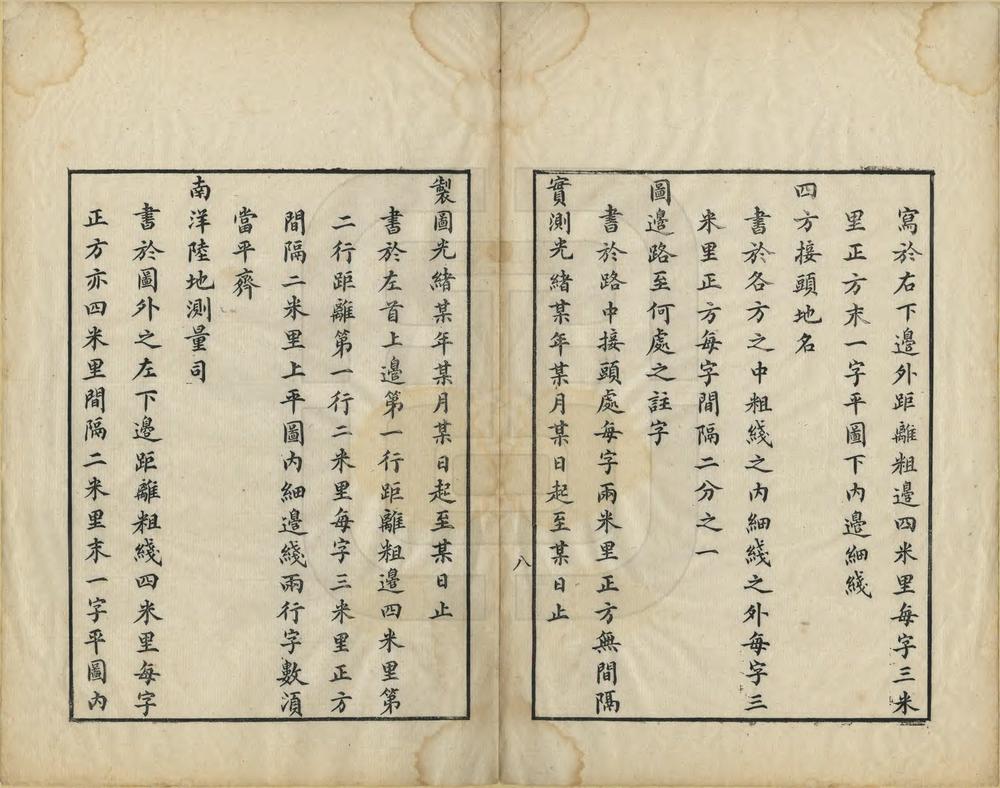 寫於右下邊外距離粗邊四米里每字三米
里正方末一字平圖下內邊細綫
四方接頭地名
書於各方之中粗綫之內細綫之外每字三
米里正方每字間隔二分之一
圖邊路至何處之註字
書於路中接頭處每字兩米里正方無間隔
實測光緒某年某月某日起至某日止
八
製圖光緒某年某月某日起至某日止
書於左首上邊第一行距離粗邊四米里第
二行距離第一行二米里每字三米里正方
間隔二米里上平圖內細邊綫兩行字數湏
當平齊
南洋陸地測量司
書於圖外之左下邊距離粗綫四米里每字
正方亦四米里間隔二米里末一字平圖內